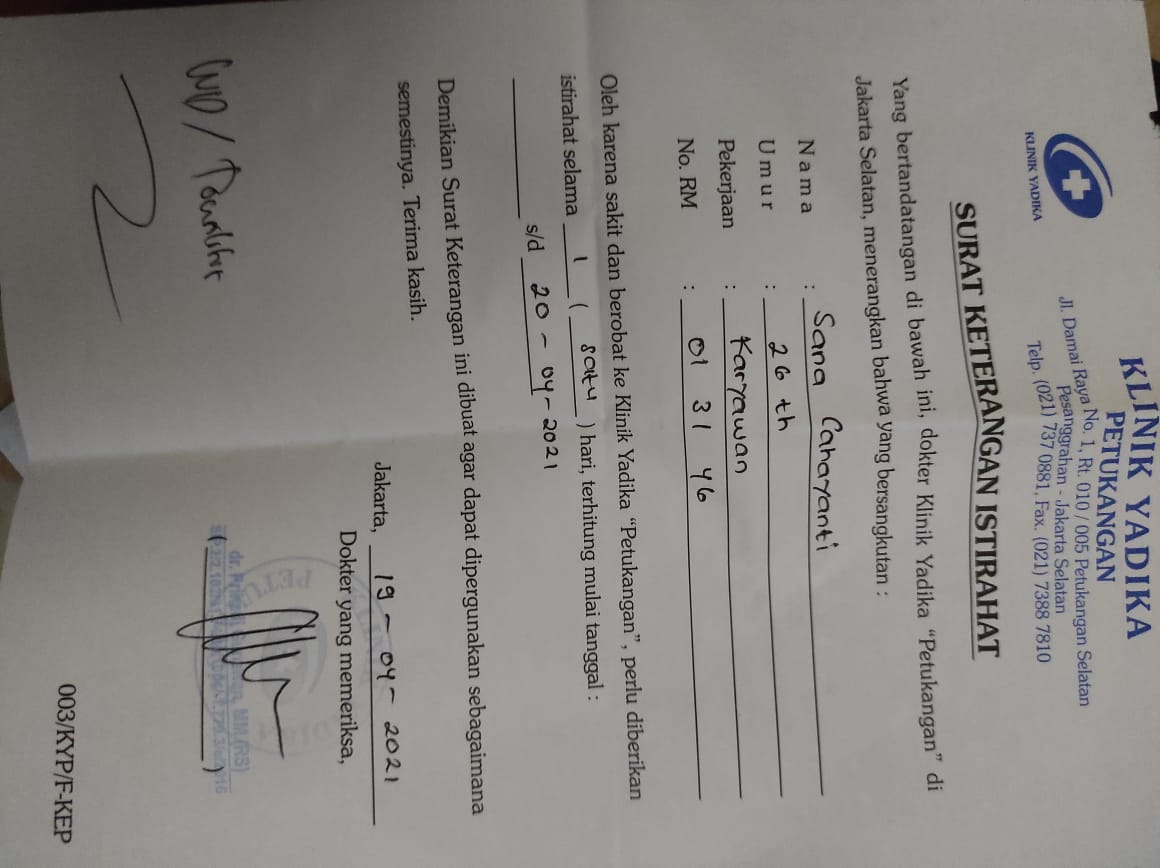 KLINIK YADIKA
PETUKANGAN
Jl. Damai Raya No. 1, Rt. 010 / 005 Petukangan Selatan
Pesanggrahan - Jakarta Selatan
Telp. (021) 737 0881, Fax. (021) 7388 7810
KLINIK YADIKA
SURAT KETERANGAN ISTIRAHAT
Yang bertandatangan di bawah ini, dokter Klinik Yadika “Petukangan” di
Jakarta Selatan, menerangkan bahwa yang bersangkutan :
Nama : Sana Cahayanti
Umur : 26 th
Pekerjaan : Karyawan
No. RM : 01 31 46
Oleh karena sakit dan berobat ke Klinik Yadika “Petukangan”, perlu diberikan
istirahat selama 1 ( satu ) hari, terhitung mulai tanggal :
s/d 20 - 04 - 2021
Demikian Surat Keterangan ini dibuat agar dapat dipergunakan sebagaimana
semestinya. Terima kasih.
Jakarta, 19 - 04 - 2021
Dokter yang memeriksa,
dr. MM.(RS)
( )
003/KYP/F-KEP